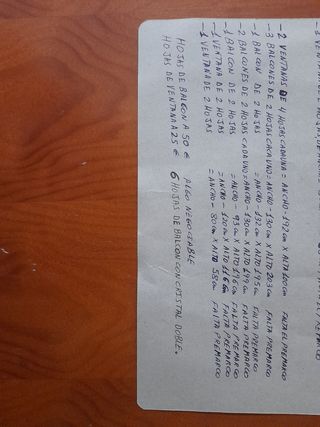 -2 VENTANAS DE 4 HOJAS CADAUNA = ANCHO-192cm X ALTO 100cm FALTA EL PREMARCO
-3 BALCONES DE 2 HOJAS CADAUNO = ANCHO-130cm X ALTO 203cm FALTA PREMARCO
-1 BALCON DE 2 HOJAS = ANCHO-132cm X ALTO 195cm FALTA PREMARCO
-2 BALCONES DE 2 HOJAS CADAUNO = ANCHO-130cm X ALTO 199cm FALTA PREMARCO
-1 BALCON DE 2 HOJAS = ANCHO-93cm X ALTO 196cm FALTA PREMARCO
-1 VENTANA DE 2 HOJAS = ANCHO-120cm X ALTO 116cm FALTA PREMARCO
-1 VENTANA DE 2 HOJAS = ANCHO-80cm X ALTO 58cm FALTA PREMARCO
HOJAS DE BALCON A 50 € ALGO NEGOCIABLE
HOJAS DE VENTANA A 25 € 6 HOJAS DE BALCON CON CRISTAL DOBLE.